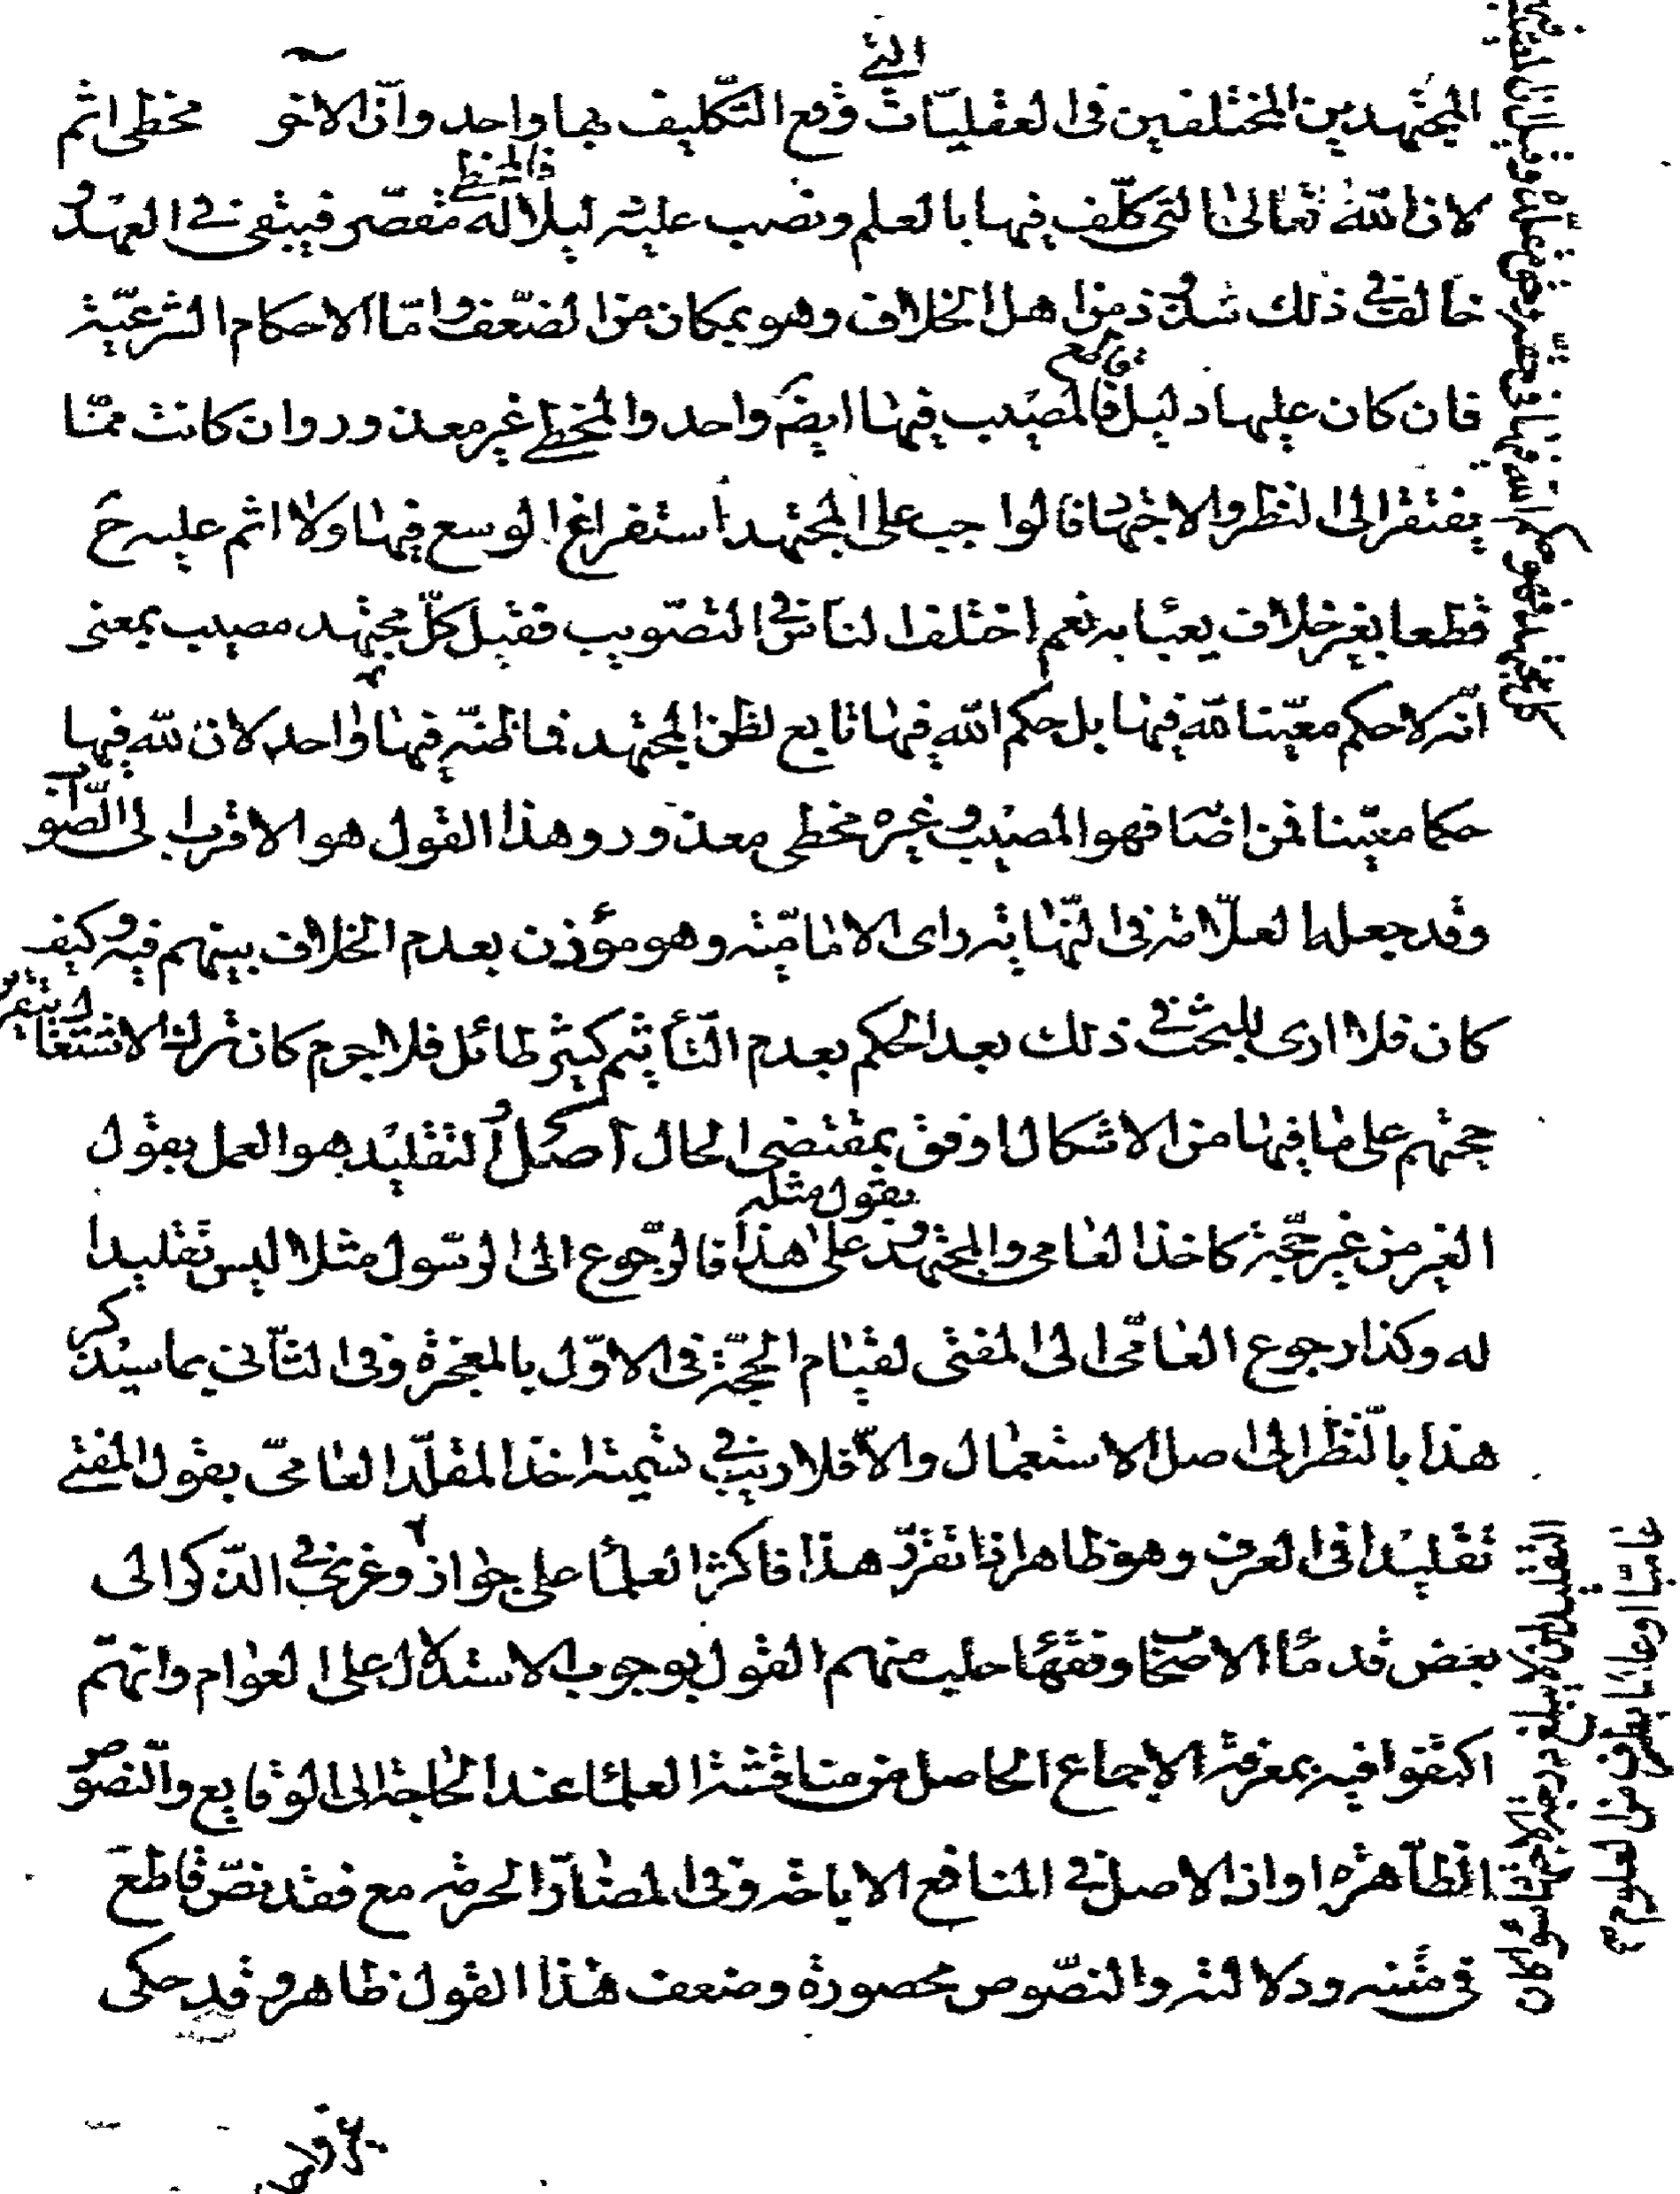 التي
المجتهدين المختلفين فى العقليّات وقع التّكليف بها واحد وانّ الاخر مخطى اثم
لان الله تعالى كلّف فيها بالعلم ونصب عليه دليلا فالمخطى له مقصّر فيبقى في العهدة و
خالف في ذلك شذوذ من اهل الخلاف وهو بمكان من الضّعف وامّا الاحكام الشرعيّة
فان كان عليها دليل قاطع فالمصيب فيها ايضَ واحد والمخطي غير معذور وان كانت ممّا
يفتقر الى النظر والاجتهاد فالواجب على المجتهد استفراغ الوسع فيها ولا اثم عليه حَ
قطعا بغير خلاف يعبٲ به نعم اختلف الناس في التّصويب فقيل كلّ مجتهد مصيب بمعنى
انّه لا حكم معيّنا لله فيها بل حكم الله فيها تابع لظن المجتهد فما ظنّه فيها
واحد لان لله فيها
حكما معيّنا فمن اصابه فهو المصيب وغيره مخطى معذور وهذا القول هو الاقرب الى الصّواب
وقد جعله العلّامة فى النّهاية راى الاماميّة وهو مؤذن بعدم الخلاف بينهم فيه وكيف
كان فلا ارى للبحث في ذلك بعد الحكم بعدم التّأثيم كثير طائل فلا جرم كان ترك الاشتغال بتقرير
حجتهم على ما فيها من الاشكال اوفق بمقتضى الحال اصل والتقليد هو العمل بقول
الغير من غير حجّية كاخذ العامى والمجتهد بقول مثله وعلى هذا فالرّجوع الى الرّسول مثلا ليس تقليدا
له وكذا رجوع العامّى الى المفتى لقيام الحجّة فى الاوّل بالمعجزة وفى الثّانى بما سيذكر
هذا بالنّظر الى اصل الاستعمال والّا فلا ريب في تسمية اخذ المقلّد العامىّ بقول المفتي
تقليدا فى العرف وهو ظاهر اذا تقرّر هذا فاكثر العلماء على جوازه وعزى في الذّكرى الى
بعض قدماء الاصحاب وفقهاء حلب منهم القول بوجوب الاستدلال على العوام وانهم
اكتفوا فيه بمعرفة الاجماع الحاصل من مناقشة العلماء عند الحاجة الى الوقايع والنّصوص
الظّاهرة او ان الاصل في المنافع الاباحة وفى المضارّ الحرمة مع فقد نصّ قاطع
فى متنه ودلالته والنصّوص محصورة وضعف هذا القول ظاهر وقد حكى